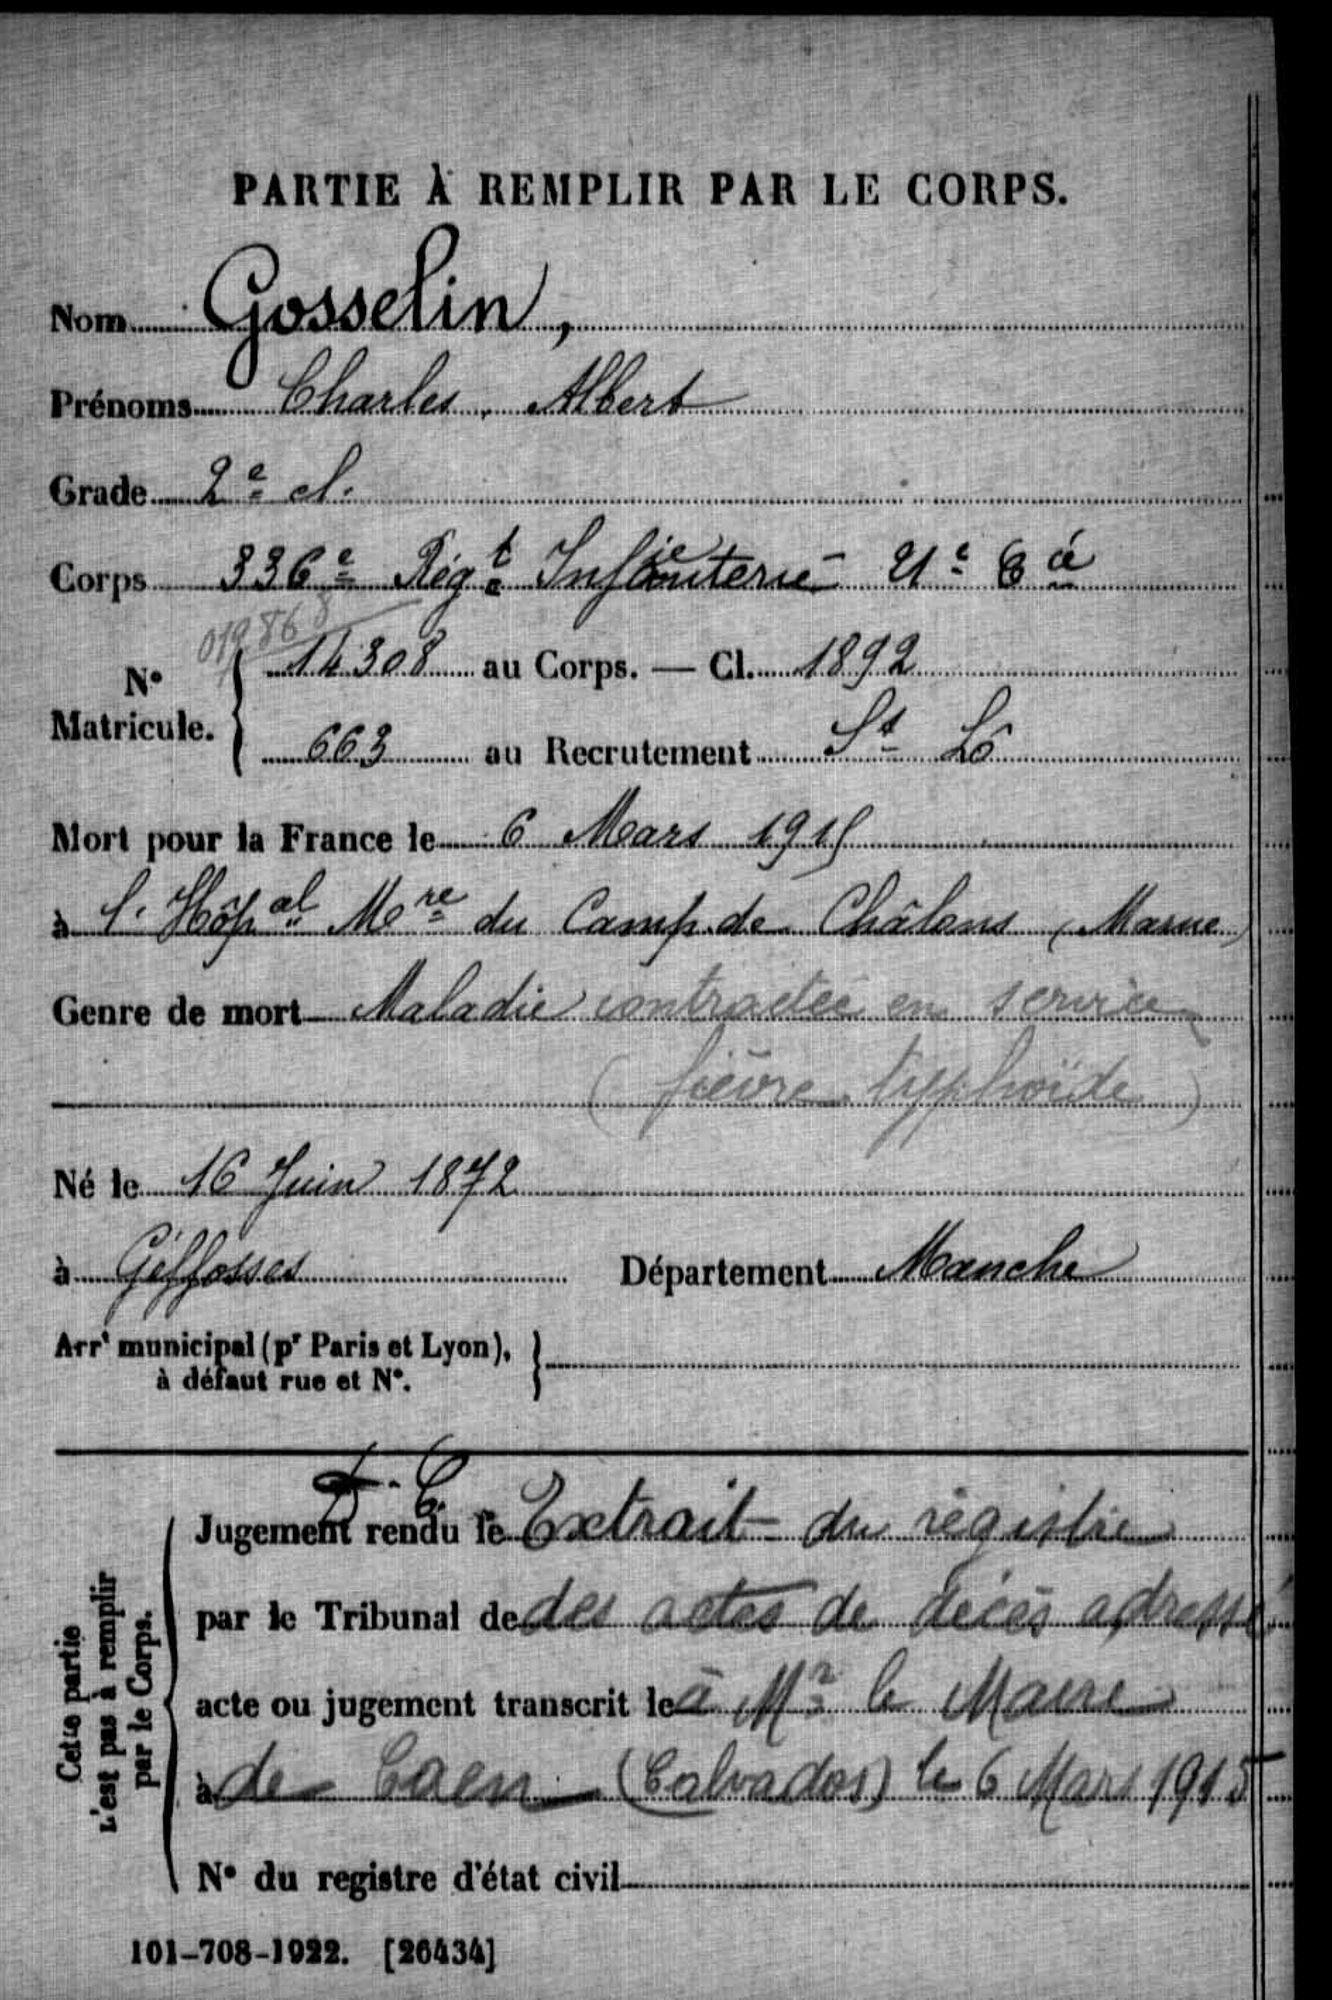 PARTIE À REMPLIR PAR LE CORPS.
Nom Gosselin,
Prénoms Charles, Albert
Grade 2e cl.
Corps 336e Régt Infanterie 21e Cie
019868
No Matricule. 14308 au Corps. — Cl. 1892
663 au Recrutement St Lô
Mort pour la France le 6 Mars 1915
à l'Hôpal Mre du Camp de Châlons (Marne)
Genre de mort Maladie contractée en service
(fièvre typhoïde)
Né le 16 Juin 1872
à Géffosses Département Manche
Arrt municipal (pr Paris et Lyon),
à défaut rue et No.
Cette partie
n'est pas à remplir
par le Corps.
Jugement rendu le Extrait du registre
par le Tribunal de des actes de décès adressé
acte ou jugement transcrit le à Mr le Maire
à de Caen (Calvados) le 6 Mars 1915
No du registre d'état civil
101-708-1922. [26434]